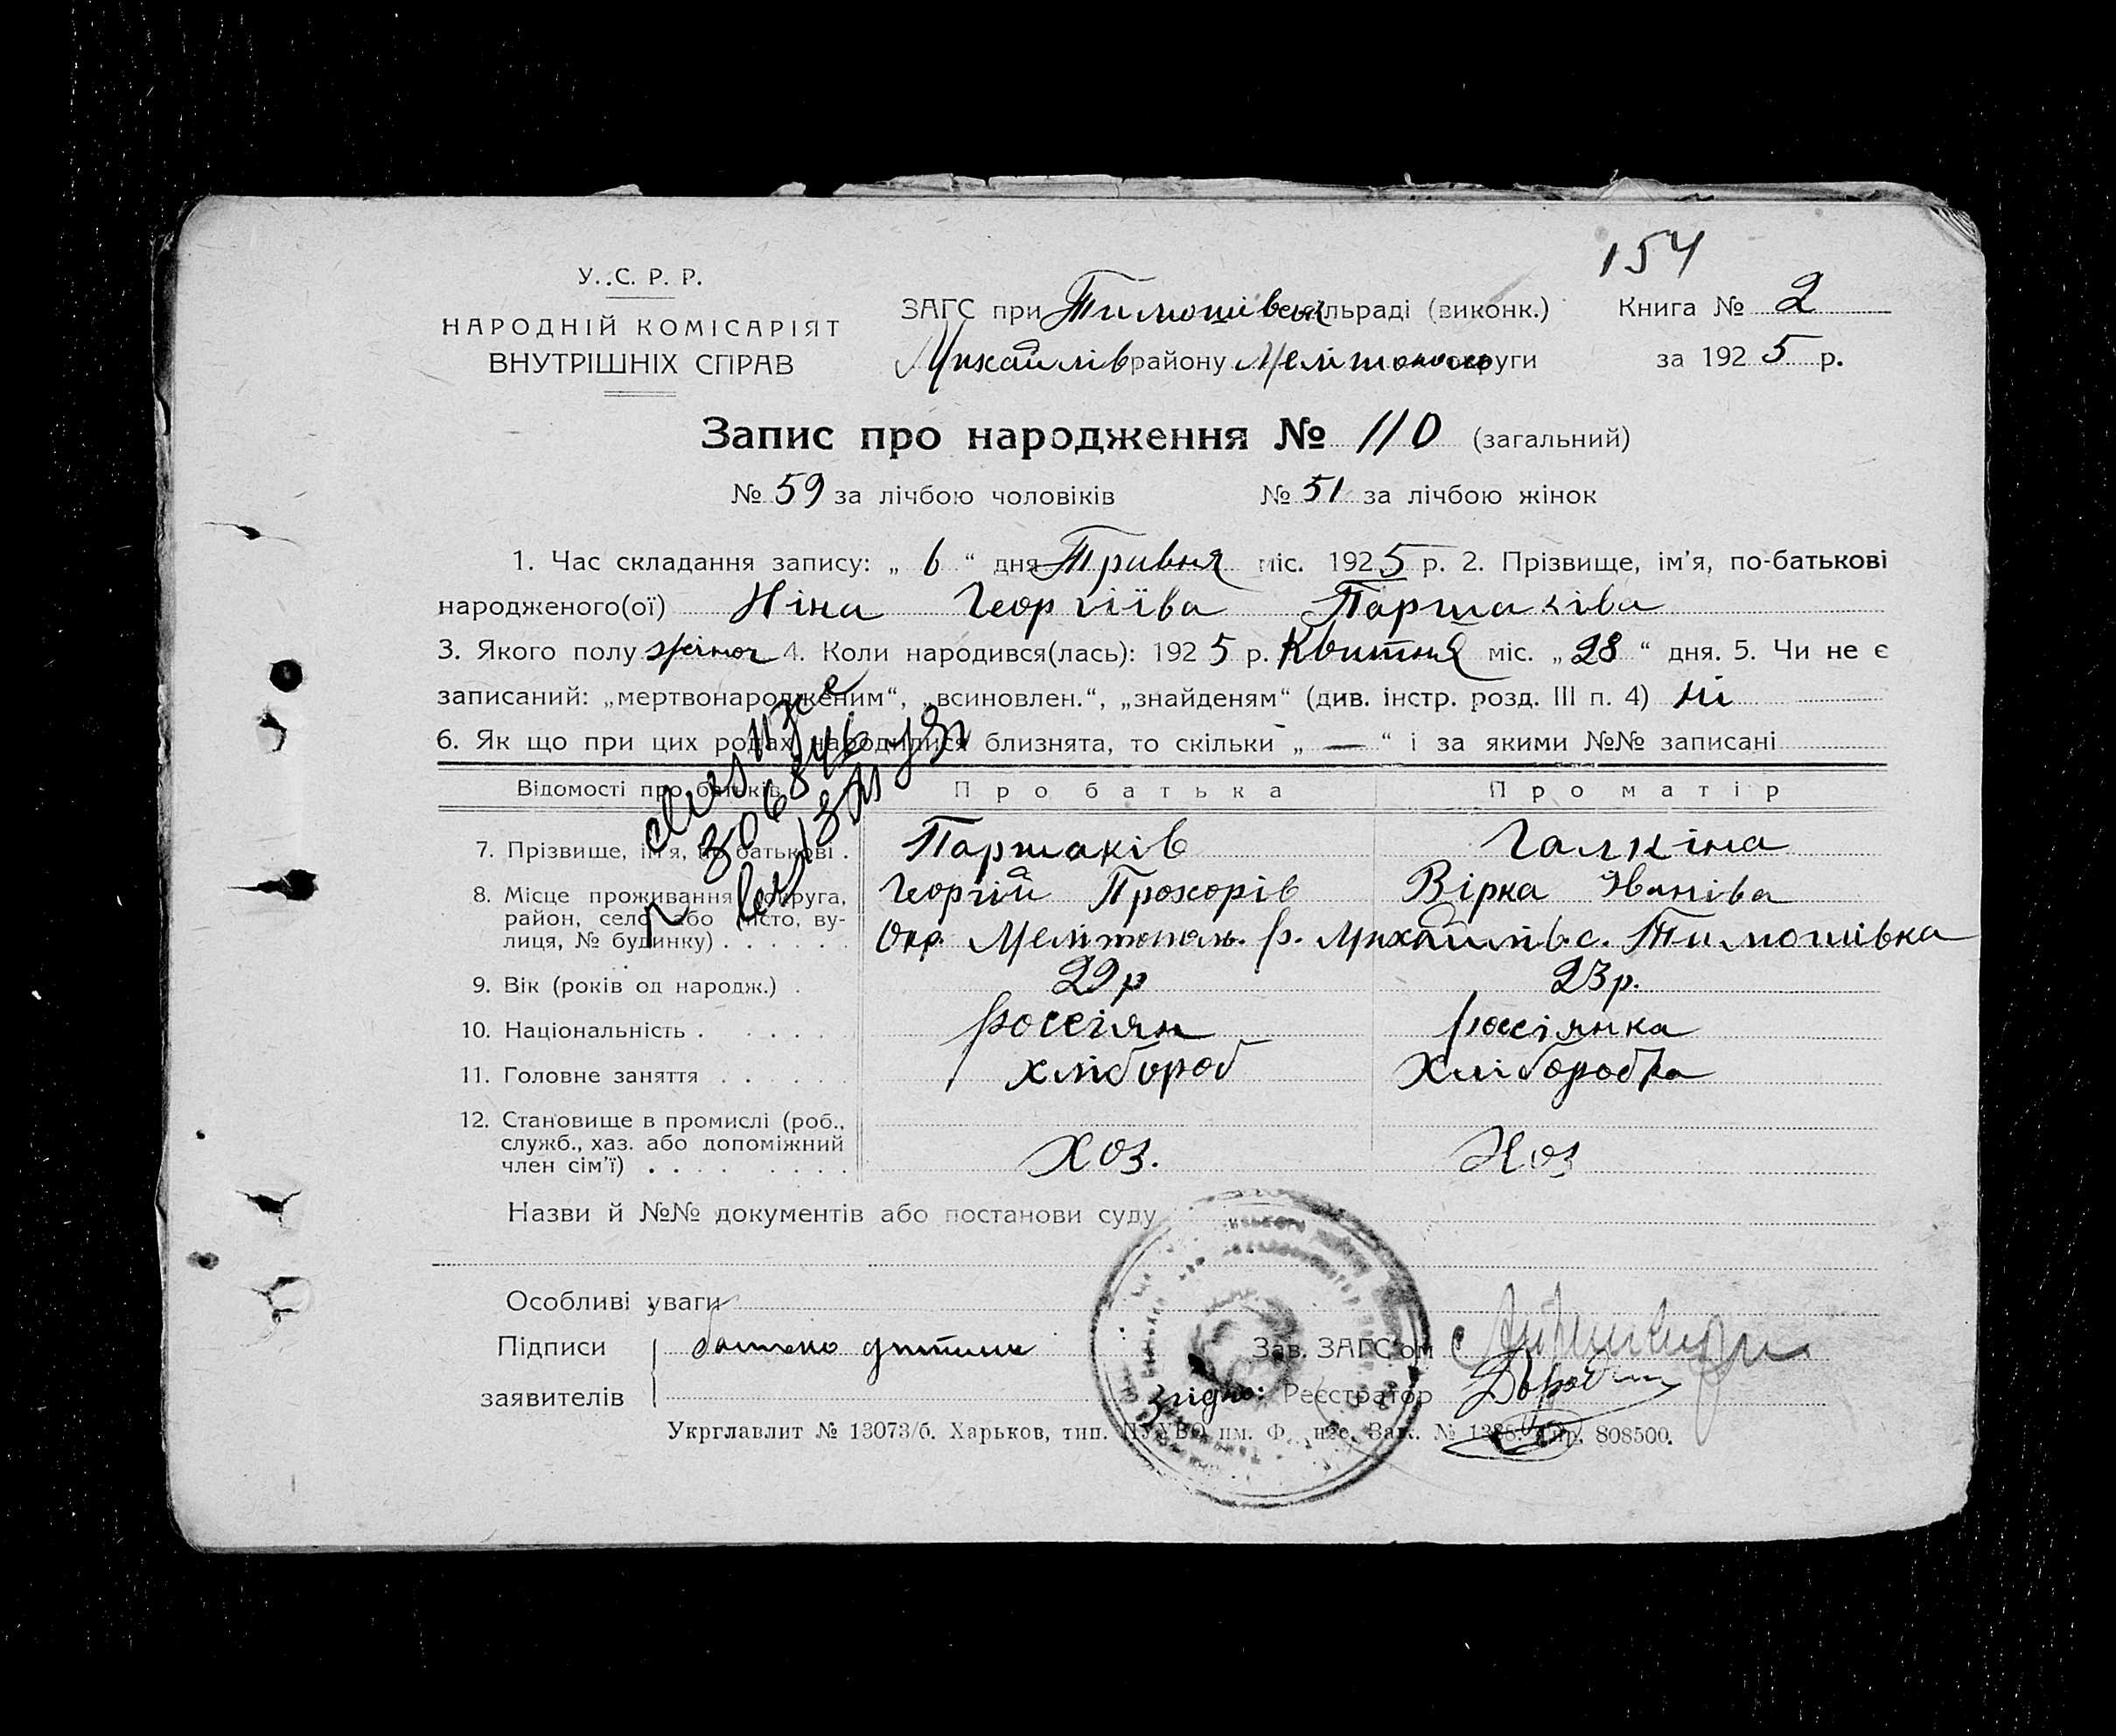 154
У. С. Р. Р.
НАРОДНІЙ КОМІСАРІЯТ
ВНУТРІШНІХ СПРАВ
ЗАГС при Тимошівськ сільраді (виконк.)
Михайлів району Мелітополь округи
Книга № 2
за 1925 р.
Запис про народження № 110 (загальний)
№ 59 за лічбою чоловіків № 51 за лічбою жінок
1. Час складання запису: „ 6 “ дня Травня міс. 1925 р. 2. Прізвище, ім'я, по-батькові
народженого(ої) Ніна Георгіїва Паршаківа
3. Якого полу 4. Коли народився(лась): 1925 р. Квитня міс. „ 28 “ дня. 5. Чи не є
записаний: „мертвонародженим“, „всиновлен.“, „знайденям“ (див. інстр. розд. III п. 4) ні
6. Як що при цих родах народилися близнята, то скільки „ — “ і за якими №№ записані
Відомості про батьків Про батька Про матір
7. Прізвище, ім'я, по батькові . Паршаків Галкіна
Георгій Прохорів Вірка Иваніва
8. Місце проживання (округа,
район, село або місто, ву-
лиця, № будинку) . . . . . . Окр. Мелітополь. р. Михайлів. с. Тимошівка
9. Вік (років од народж.) . 29 р 23 р.
10. Національність . . . . . россіян россіянка
11. Головне заняття . . . . . хлібороб Хліборобка
12. Становище в промислі (роб.,
служб., хаз. або допоміжний
член сім'ї) . . . . . . . Хоз. Хоз
Назви й №№ документів або постанови суду
Особливі уваги
Підписи батько дитини
заявителів
Зав. ЗАГС'ом
Згідно: Реєстратор
Укрглавлит № 13073/б. Харьков, тип. им. Ф. Зак. № Тир. 808500.